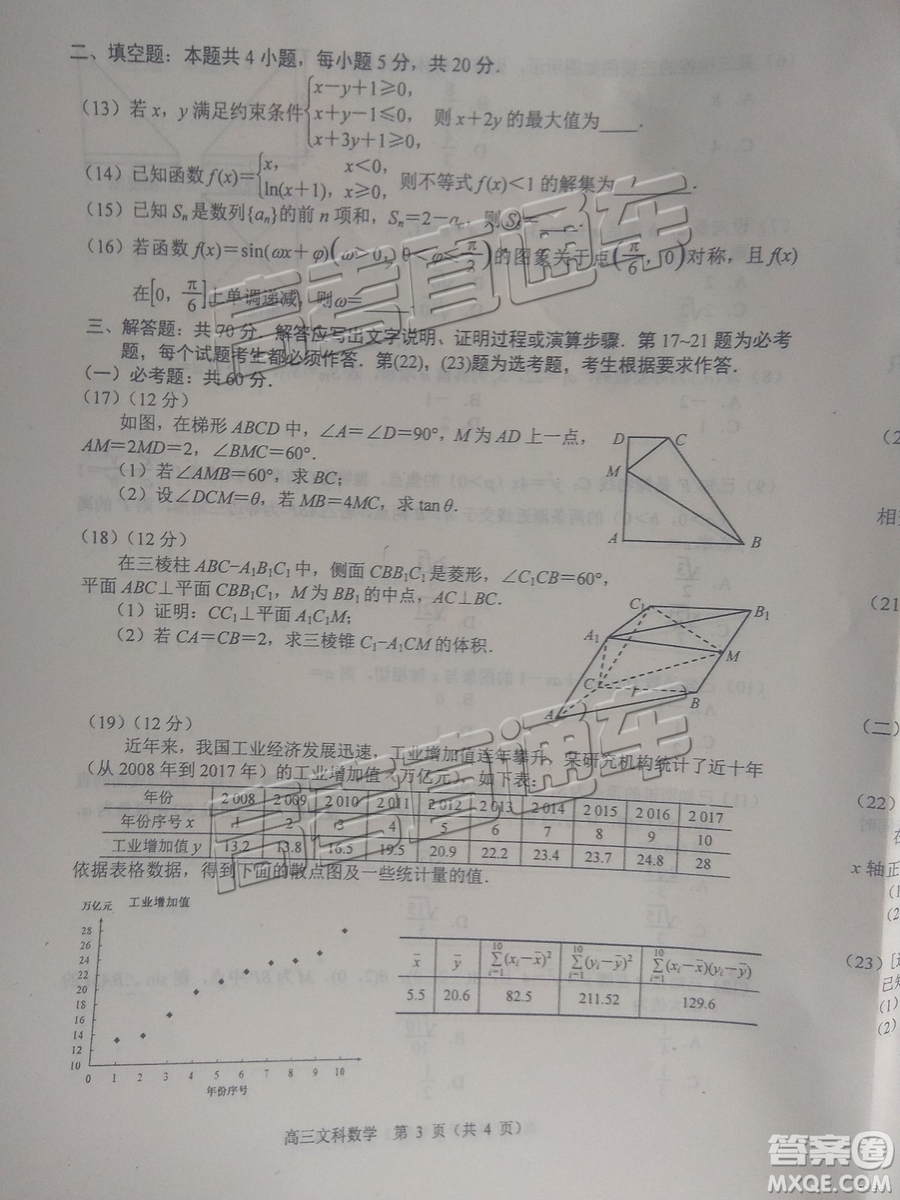 二、填空题：本题共 4 小题，每小题 5 分，共 20 分．
（13）若 x，y 满足约束条件{x－y＋1≥0，x＋y－1≤0，x＋3y＋1≥0，则 x＋2y 的最大值为____．
（14）已知函数 f(x)＝{x，x＜0，ln(x＋1)，x≥0，则不等式 f(x)＜1 的解集为____．
（15）已知 Sn 是数列{an}的前 n 项和，Sn＝2－
（16）若函数 f(x)＝sin(ωx＋φ)(ω＞0，0＜φ＜π/2)的图象关于点(π/6，0)对称，且 f(x)
在[0，π/6]上单调递减，则ω＝____．
三、解答题：共 70 分．解答应写出文字说明、证明过程或演算步骤．第 17~21 题为必考
题，每个试题考生都必须作答．第(22)，(23)题为选考题，考生根据要求作答．
（一）必考题：共 60 分．
（17）（12 分）
如图，在梯形 ABCD 中，∠A＝∠D＝90°，M 为 AD 上一点，
AM＝2MD＝2，∠BMC＝60°．
（1）若∠AMB＝60°，求 BC；
（2）设∠DCM＝θ，若 MB＝4MC，求 tanθ．
D C
M
A B
（18）（12 分）
在三棱柱 ABC−A1B1C1 中，侧面 CBB1C1 是菱形，∠C1CB＝60°，
平面 ABC⊥平面 CBB1C1，M 为 BB1 的中点，AC⊥BC．
（1）证明：CC1⊥平面 A1C1M；
（2）若 CA＝CB＝2，求三棱锥 C1−A1CM 的体积．
C1 B1
A1
M
C
B
A
（19）（12 分）
近年来，我国工业经济发展迅速，工业增加值连年攀升，某研究机构统计了近十年
（从 2008 年到 2017 年）的工业增加值（万亿元），如下表：
年份 2 008 2 009 2 010 2 011 2 012 2 013 2 014 2 015 2 016 2 017
年份序号 x 1 2 3 4 5 6 7 8 9 10
工业增加值 y 13.2 13.8 16.5 19.5 20.9 22.2 23.4 23.7 24.8 28
依据表格数据，得到下面的散点图及一些统计量的值．
万亿元 工业增加值
28
26
24
22
20
18
16
14
12
10
0 1 2 3 4 5 6 7 8 9 10
年份序号
x̄ ȳ ∑(i=1→10)(xi−x̄)² ∑(i=1→10)(yi−ȳ)² ∑(i=1→10)(xi−x̄)(yi−ȳ)
5.5 20.6 82.5 211.52 129.6
高三文科数学 第 3 页（共 4 页）
高考直通车
高考直通车
相
(21
(二)
(22)
在
x 轴正
(1)
(2)
(23)
已知
(1)
(2)
答案圈
MXQE.COM